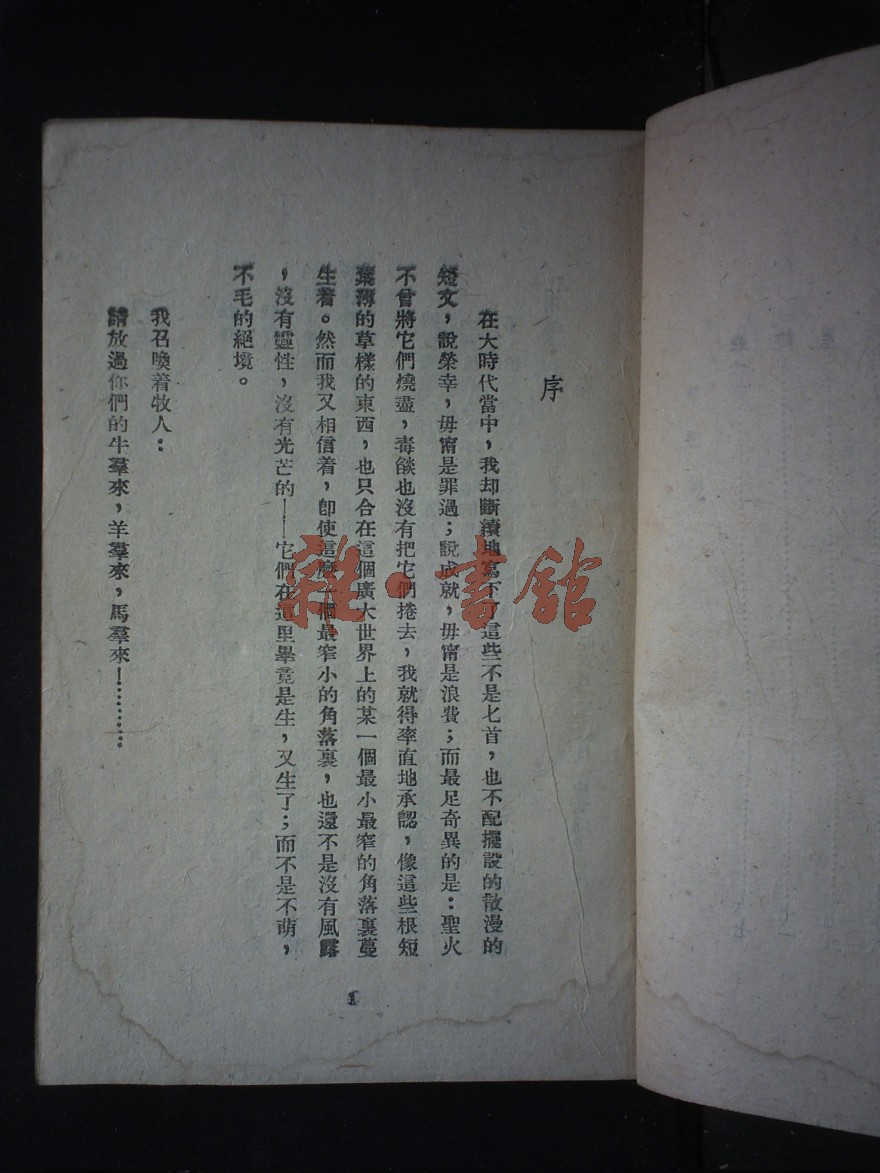 序
在大時代當中，我却斷續地寫下了這些不是匕首，也不配擺設的散漫的
短文，說榮幸，毋甯是罪過；說成就，毋甯是浪費；而最足奇異的是：聖火
不曾將它們燒盡，毒燄也沒有把它們捲去，我就得率直地承認，像這些根短
葉薄的草樣的東西，也只合在這個廣大世界上的某一個最小最窄的角落裏蔓
生着。然而我又相信着，卽使這麽一個最窄小的角落裏，也還不是沒有風露
，沒有靈性，沒有光芒的——它們在這里畢竟是生，又生了；而不是不萌，
不毛的絕境。
我召喚着牧人：
請放過你們的牛羣來，羊羣來，馬羣來！…………
1
雜·書館